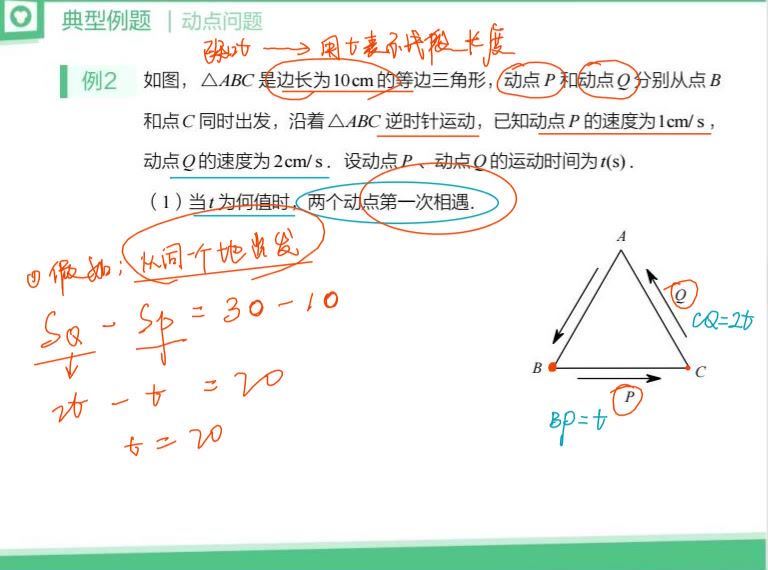 典型例题 | 动点问题
→ 用t表示线段长度
例2 如图，△ABC是边长为10cm的等边三角形，动点P和动点Q分别从点B
和点C同时出发，沿着△ABC逆时针运动，已知动点P的速度为1cm/s，
动点Q的速度为2cm/s．设动点P、动点Q的运动时间为t(s)．
（1）当t为何值时，两个动点第一次相遇．
① 假如：从同一个地出发
S_Q - S_P = 30 - 10
2t - t = 20
t = 20
A
Q
CQ=2t
B
C
P
BP=t